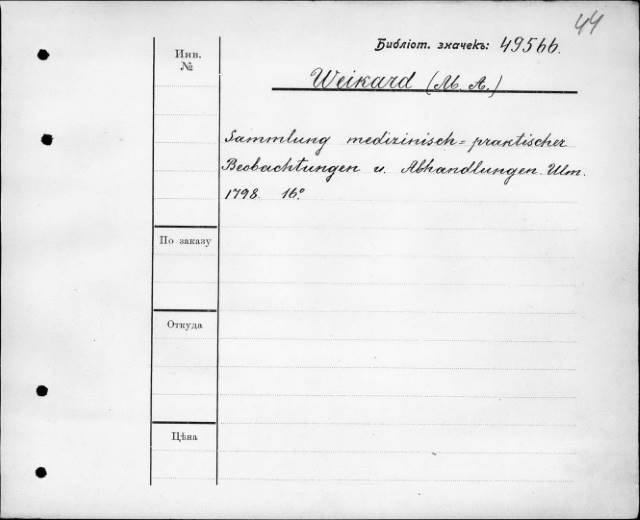 44
Библіот. значекъ: 49566.
Инв.
№
Weikard (M. A.)
Sammlung medizinisch=praktischer
Beobachtungen u. Abhandlungen. Ulm.
1798. 16°
По заказу
Откуда
Цѣна